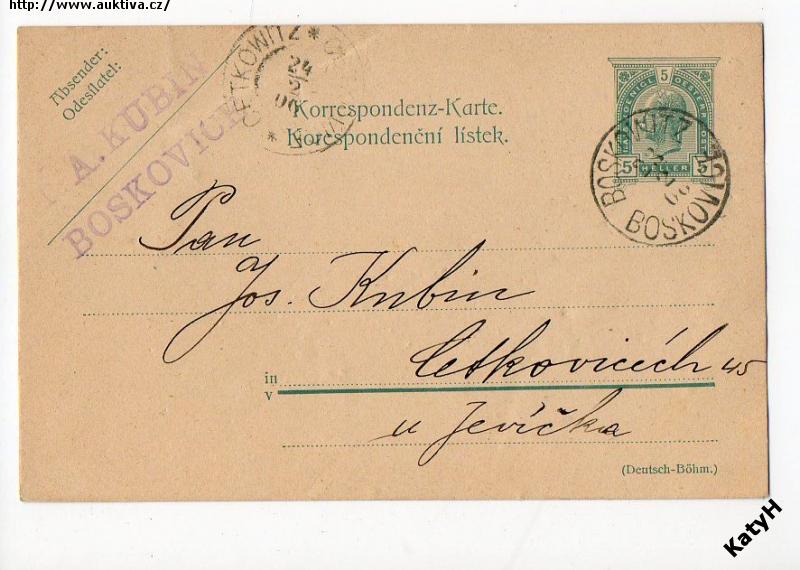 http://www.auktiva.cz/
Absender:
Odesílatel:
A. KUBIN
BOSKOVICE
CETKOWITZ * C
24
2
06
Korrespondenz-Karte.
Korespondenční lístek.
5
HELLER
5 5
BOSKOWITZ
BOSKOVICE
06
Pan
Jos. Kubin
in
v
Cetkovicích 45
u Jevíčka
(Deutsch-Böhm.)
KatyH